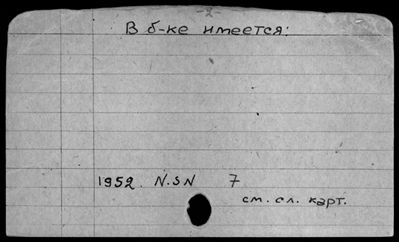 -2-
В б-ке имеется:
1952. N.SN 7
см. сл. карт.